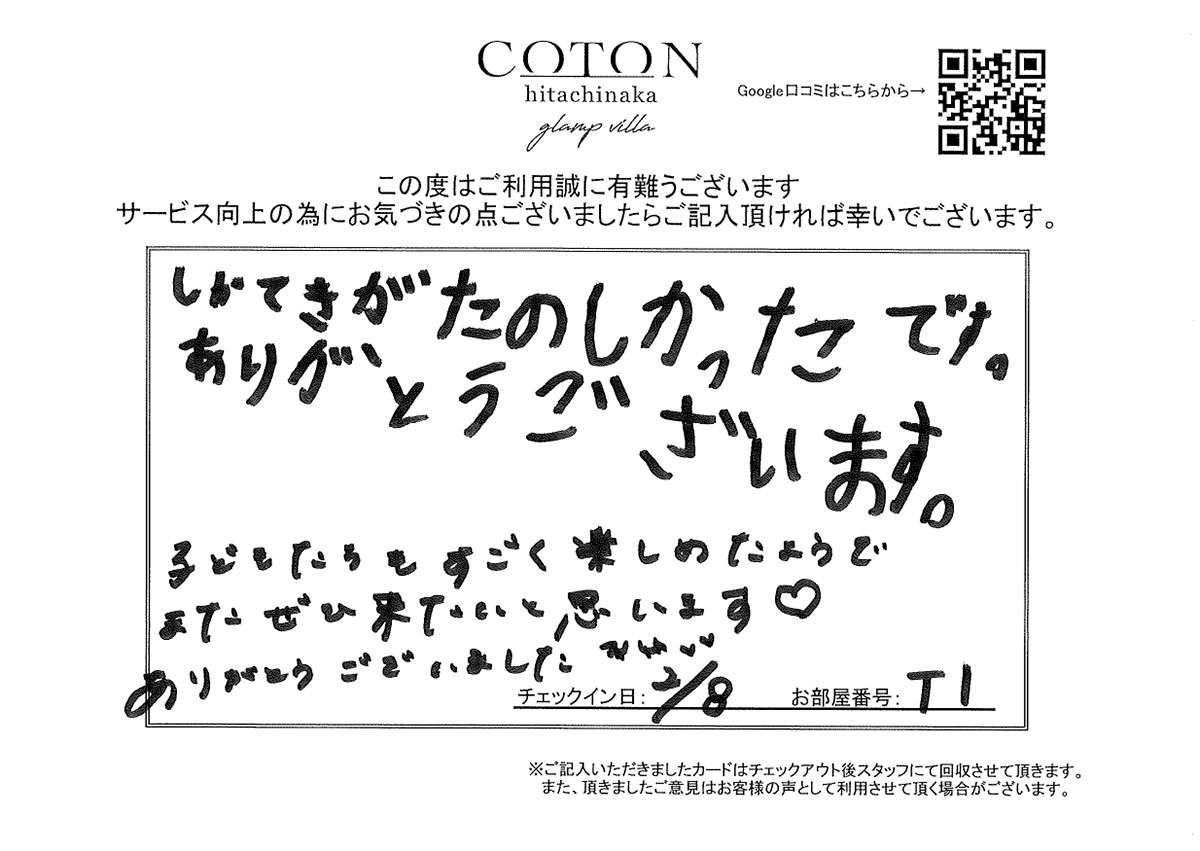 COTON
hitachinaka
glamp villa
Google口コミはこちらから→
この度はご利用誠に有難うございます
サービス向上の為にお気づきの点ございましたらご記入頂ければ幸いでございます。
しかてきがたのしかったです。
ありがとうござ
います。
子どもたちもすごく楽しめたようで
またぜひ来たいと思います♡
ありがとうございました
チェックイン日: 2/8 お部屋番号: T1
※ご記入いただきましたカードはチェックアウト後スタッフにて回収させて頂きます。
また、頂きましたご意見はお客様の声として利用させて頂く場合がございます。